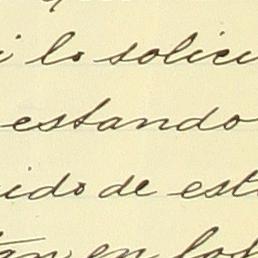 i lo solici
estando
ido de est
tan en los